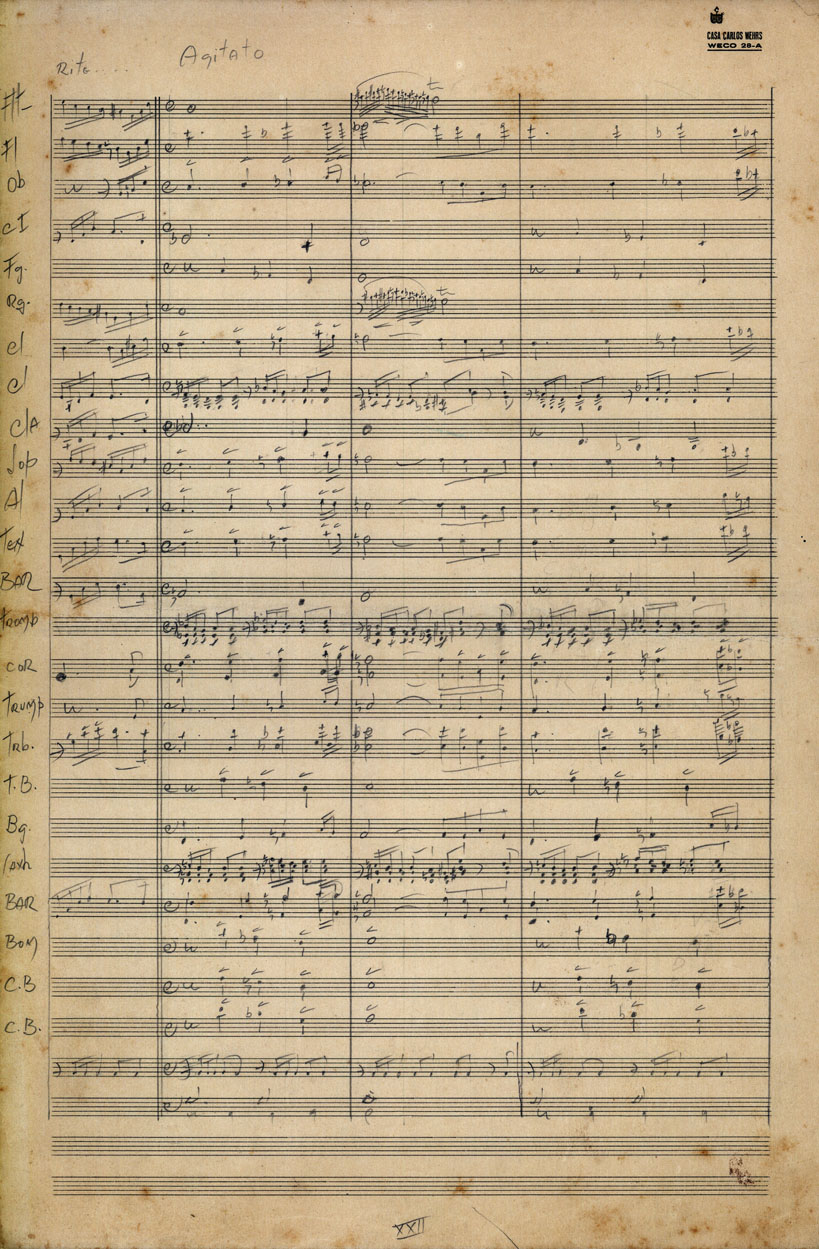 CASA CARLOS WEHRS
WECO 28-A
Agitato
Rit.....
Fl
Ob
cI
Fg.
Rg.
cl
cl
clA
Sop
Al
Tex
BAR
Tromp
COR
Trump
Trb.
T.B.
Bg.
BAR
BOM
C.B
C.B.
XXII